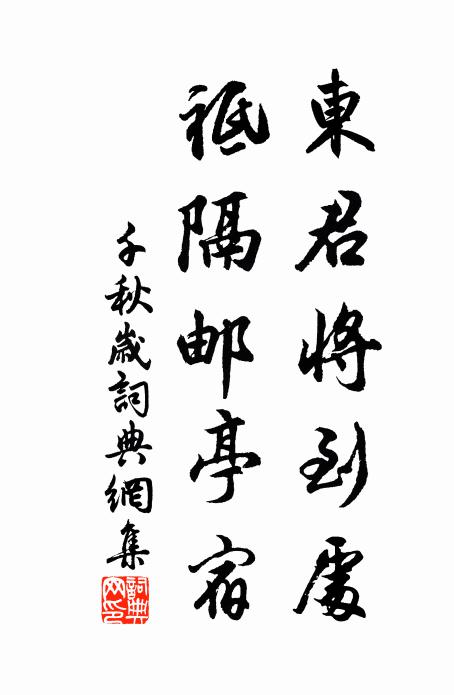 東君將到處
祗隔邮亭宿
千秋歲詞典網集
詞典网印